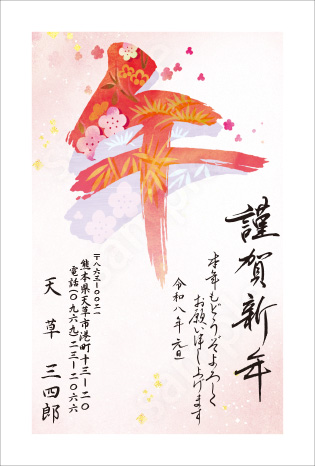 午
謹賀新年
本年もどうぞよろしく
お願い申し上げます
令和八年 元旦
〒八六三ー〇〇二一
熊本県天草市港町十三ー二〇
電話(〇九六九)二三ー二〇六六
天草 三四郎